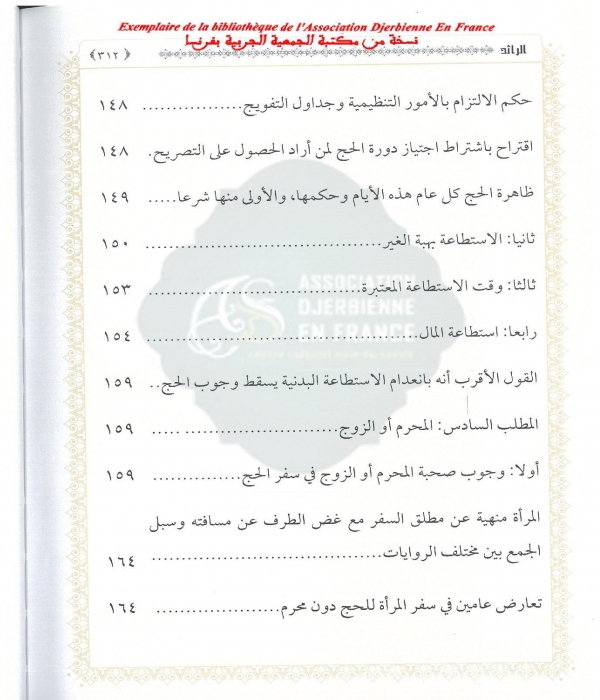 Exemplaire de la bibliothèque de l'Association Djerbienne En France
نسخة من مكتبة الجمعية الجربية بفرنسا
الرائد ﴿٣١٢﴾
حكم الالتزام بالأمور التنظيمية وجداول التفويج.................. ١٤٨
اقتراح باشتراط اجتياز دورة الحج لمن أراد الحصول على التصريح. ١٤٨
ظاهرة الحج كل عام هذه الأيام وحكمها، والأولى منها شرعا..... ١٤٩
ثانيا: الاستطاعة بهبة الغير.................................. ١٥٠
ثالثا: وقت الاستطاعة المعتبرة............................... ١٥٣
رابعا: استطاعة المال........................................ ١٥٤
القول الأقرب أنه بانعدام الاستطاعة البدنية يسقط وجوب الحج.. ١٥٩
المطلب السادس: المحرم أو الزوج........................ ١٥٩
أولا: وجوب صحبة المحرم أو الزوج في سفر الحج............... ١٥٩
المرأة منهية عن مطلق السفر مع غض الطرف عن مسافته وسبل
الجمع بين مختلف الروايات.................................. ١٦٤
تعارض عامين في سفر المرأة للحج دون محرم.................. ١٦٤
ASSOCIATION
DJERBIENNE
EN FRANCE